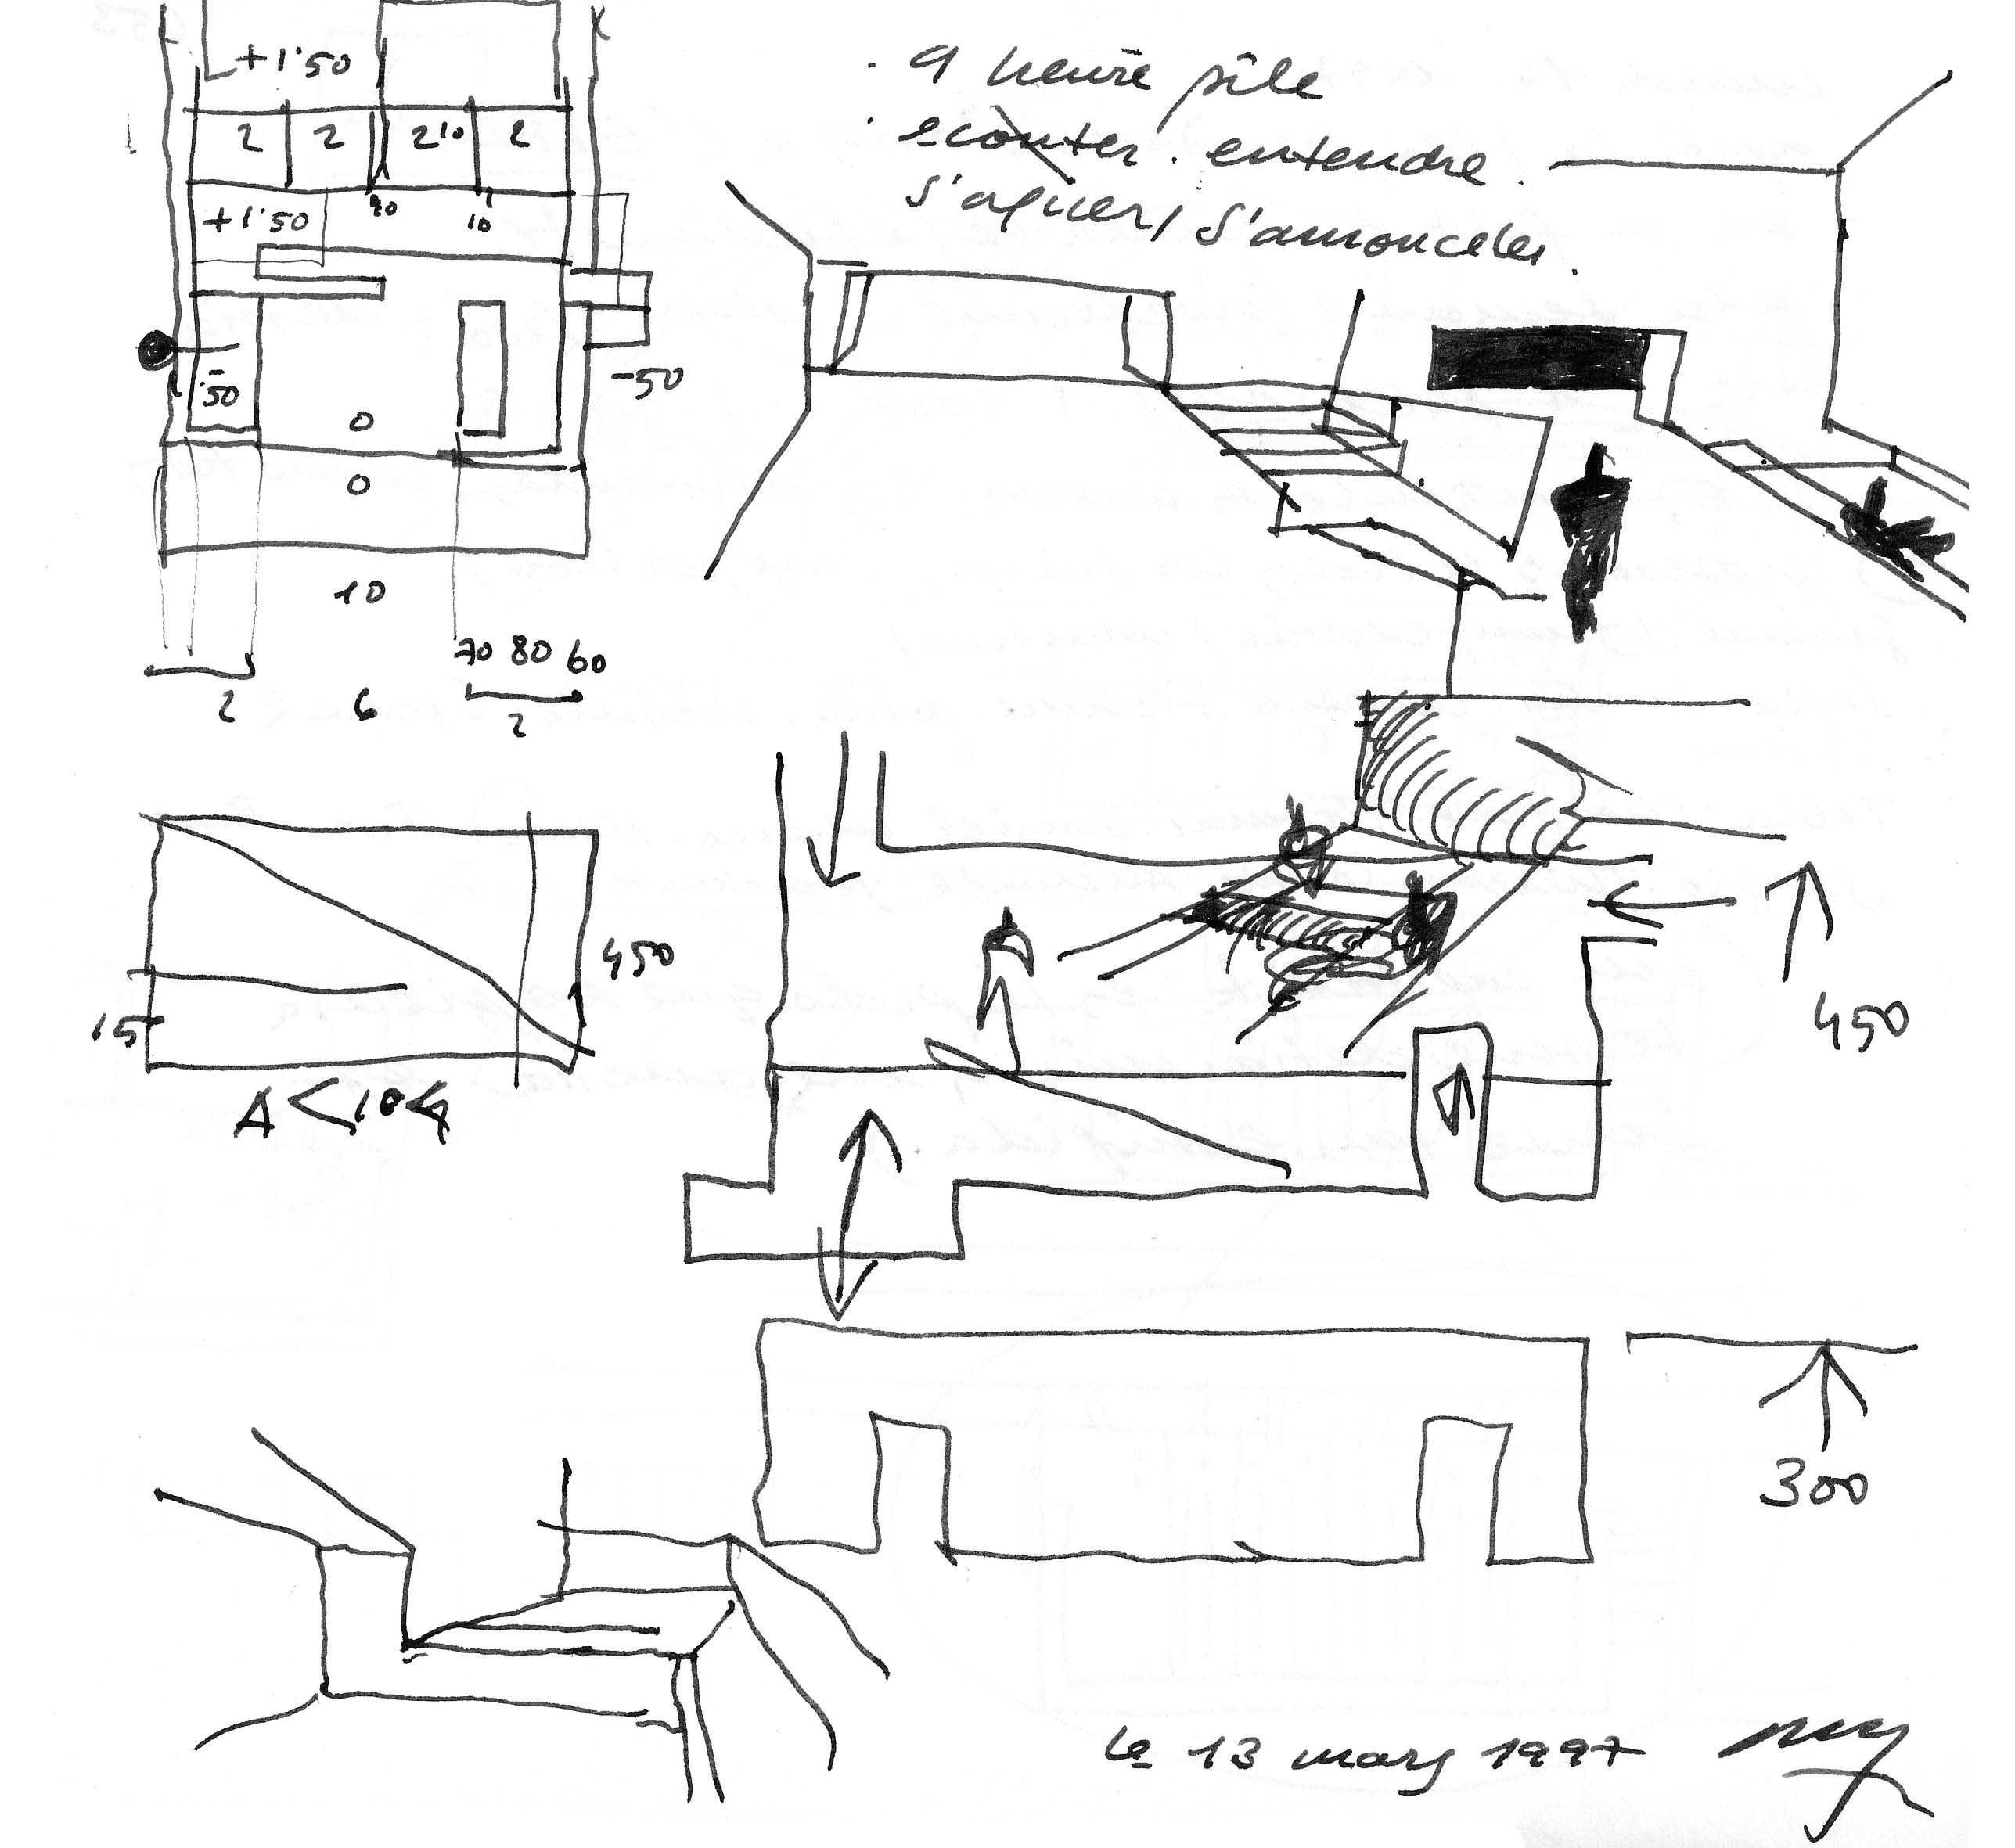 +1.50
2 2 2 10 2
+1.50 90 10
-50
-50
0
0
10
70 80 60
2 6 2
· 9 heure pile
· ecouter. entendre.
s'amonceler.
450
15
A < 10
450
300
le 13 mars 1997